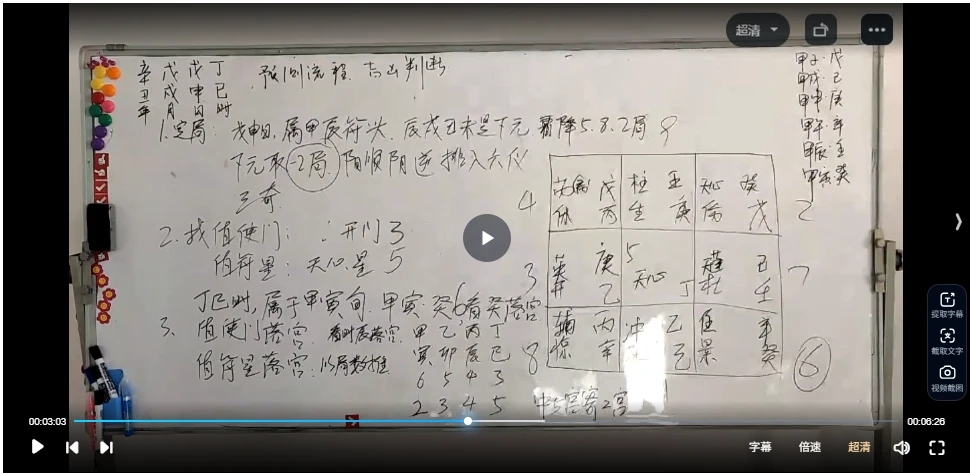 超清
辛 戊 戊 丁
丑 戌 申 巳
年 月 日 时
预测流程. 吉凶判断
1.定局: 戊申日.属甲辰符头. 辰戌丑未是下元 霜降5.8.2局
下元取-2局. 阳顺阴逆排入六仪
三奇.
2.找值使门: ∴开门3
值符星: 天心星 5
丁巳时,属于甲寅旬.甲寅:癸6看癸落宫
3. 值使门落宫: 看时辰落宫.
值符星落宫: 以局数推
甲 乙 丙 丁
寅 卯 辰 巳
6 5 4 3
2 3 4 5
中5宫寄2宫
甲子:戊
甲戌:己
甲申:庚
甲午:辛
甲辰:壬
甲寅:癸
4
戊
休 丙
柱 壬
生 庚
天心 癸
伤 戊
2
3
庚
乙
5
天心 丁
己
杜 壬
7
8
辅 丙
惊 辛
冲 乙
己
任 辛
景 癸
6
提取字幕
截取文字
视频截图
00:03:03
00:06:26
字幕
倍速
超清